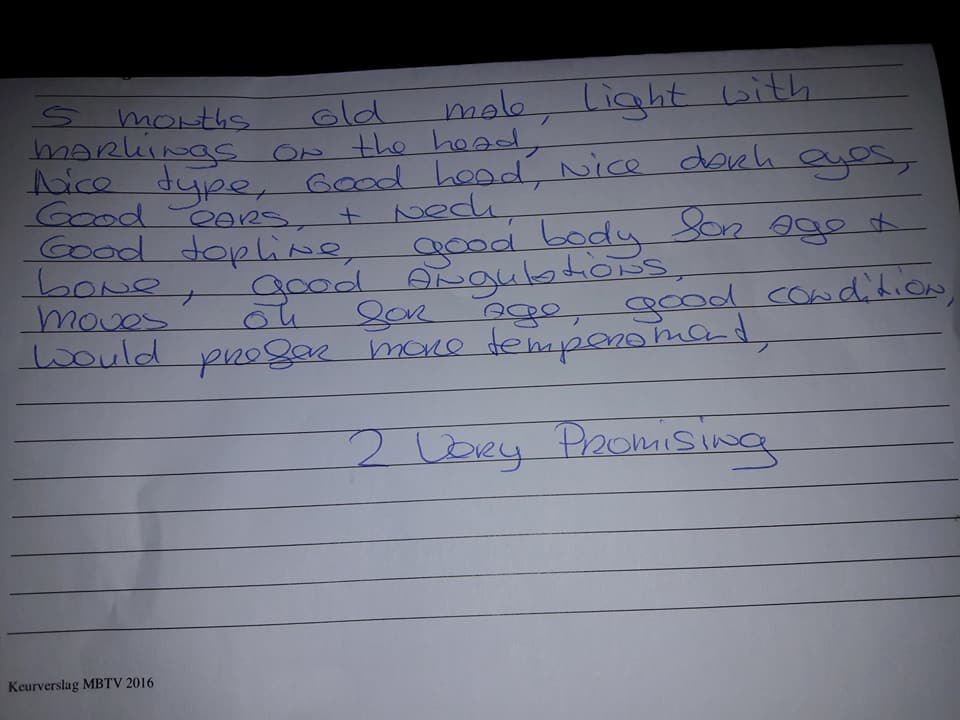 5 months old male, light with
markings on the head,
Nice type, Good head, Nice dark eyes,
Good ears, + Neck,
Good topline, good body for age +
bone, good Angulations,
moves ok for age, good condition,
would prefer more temperament,
2 Very Promising
Keurverslag MBTV 2016